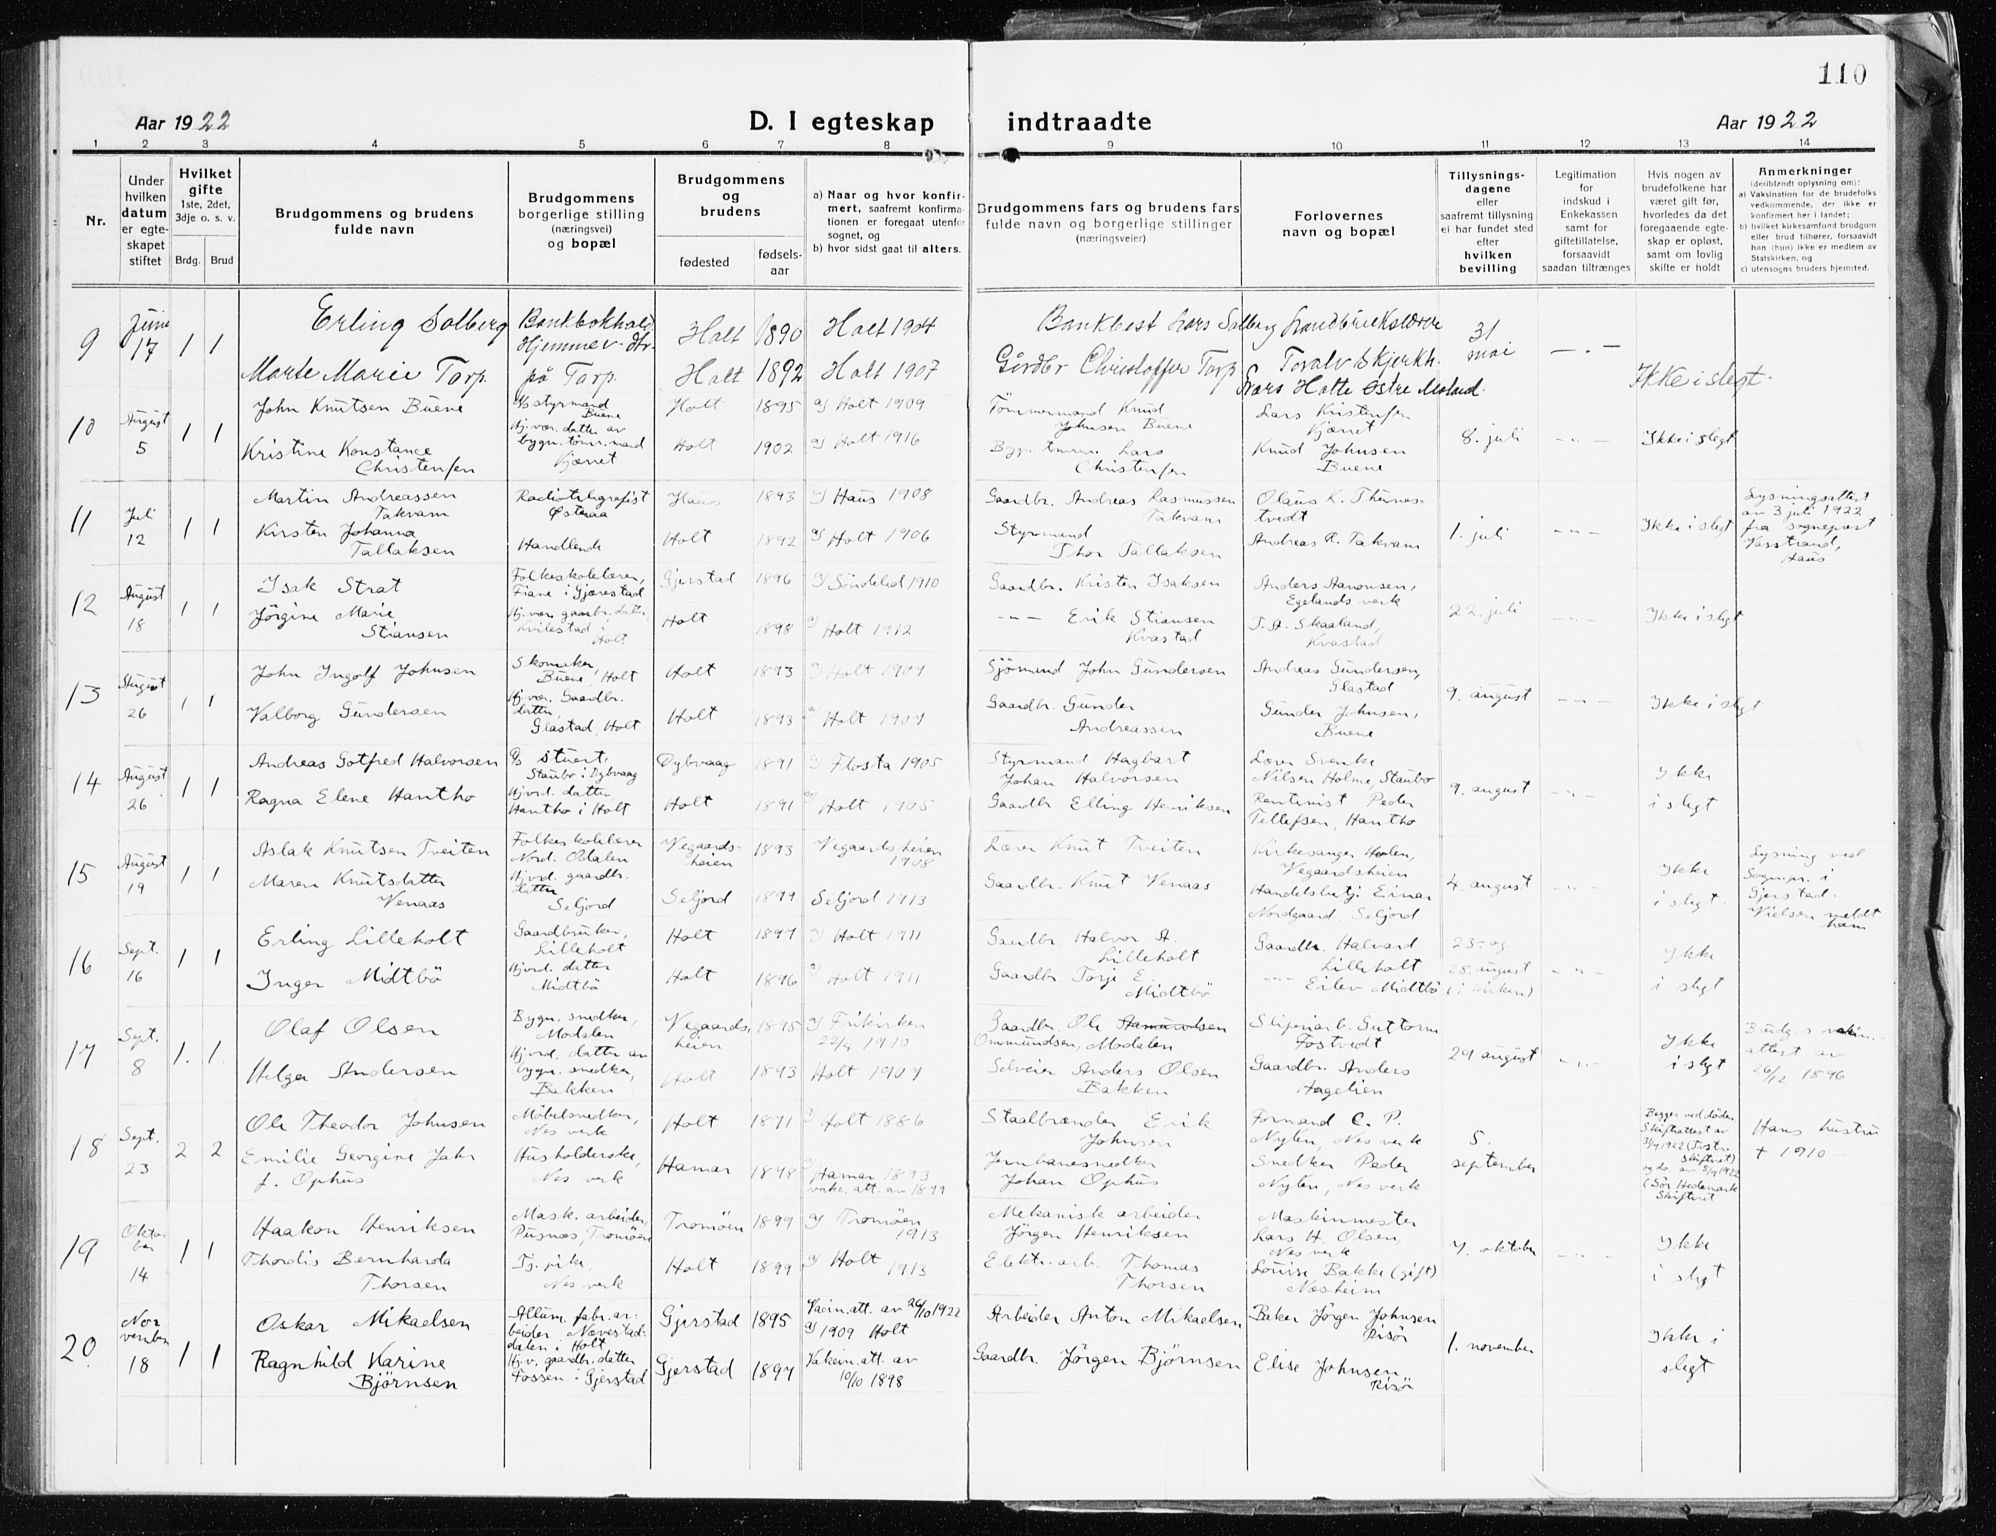 110
Aar 1922
D. I egteskap indtraadte
Aar 1922
1 2 3 4 5 6 7 8 9 10 11 12 13 14
Nr.
Under hvilken datum er egteskapet stiftet
Hvilket gifte
1ste, 2det, 3dje o. s. v.
Brdg. Brud
Brudgommens og brudens fulde navn
Brudgommens borgerlige stilling (næringsvei) og bopæl
Brudgommens og brudens
fødested
fødselsaar
a) Naar og hvor konfirmert, saafremt konfirmationen er foregaat utenfor sognet, og
b) hvor sidst gaat til alters.
Brudgommens fars og brudens fars fulde navn og borgerlige stillinger (næringsveier)
Forlovernes navn og bopæl
Tillysningsdagene eller saafremt tillysning ei har fundet sted efter hvilken bevilling
Legitimation for indskud i Enkekassen samt for giftetillatelse, forsaavidt saadan tiltrænges
Hvis nogen av brudefolkene har været gift før, hvorledes da det foregaaende egteskap er opløst, samt om lovlig skifte er holdt
Anmerkninger (deriblandt oplysning om):
a) Vaksination for de brudefolks vedkommende, der ikke er konfirmert her i landet;
b) hvilket kirkesamfund brudgom eller brud tilhører, forsaavidt han (hun) ikke er medlem av Statskirken, og
c) utensogns bruders hjemsted.
9 Juni 17 1 1
Erling Solberg
Holt 1890 Holt 1904
31 mai
Marte Marie Torp på Torp Holt 1892 Holt 1907
Gårdbr Christoffer Torp
Ikke i slegt.
10 August 5 1 1
John Knutsen Buene
Styrmand Buene
Holt 1895 a) Holt 1909
Tømmermand Knud Johnsen Buene
Lars Kristensen Kjærret
8. juli
Ikke i slegt
Kristine Konstance Christensen
Hj.vær. datter av bygn. tømr.mand Kjærret
Holt 1902 a) Holt 1916
Lars Christensen
Knud Johnsen Buene
11 Juli 12 1 1
Martin Andreassen Takvam
Radiotelegrafist Østeraa
Haus 1893 a) Haus 1908
Gaardbr. Andreas Rasmussen Takvam
1. juli
Ikke i slegt
Lysningsattest av 3 juli 1922 fra sogneprest Vasstrand, Haus
Kirsten Johanna Tallaksen
Handlende
Holt 1892 a) Holt 1906
Styrmand Thor Tallaksen
Andreas R. Takvam
12 August 18 1 1
Isak Strat
Folkeskolelærer, Fiane i Gjerestad
Gjerstad 1896 a) Søndeled 1910
Gaardbr. Kristen Isaksen
Anders Aanonsen, Egelands verk
22. juli
Ikke i slegt
Jørgine Marie Stiansen
Holt 1898 a) Holt 1912
Erik Stiansen Kvastad
T. A. Skaaland, Kvastad
13 August 26 1 1
John Ingolf Johnsen
Skomaker, Buene, Holt
Holt 1893 a) Holt 1907
Sjømand John Gundersen
Andreas Gundersen, Glastad
9. august
Ikke i slegt
Valborg Gundersen
Hj.vær. Gaardbr. datter Glastad, Holt
Holt 1893 a) Holt 1907
Gaardbr. Gunder Andreassen
Gunder Johnsen, Buene
14 August 26 1 1
Andreas Gotfred Halvorsen
Staubø i Dybvaag
Dybvaag 1891 a) Flosta 1905
Styrmand Hagbart Johan Halvorsen
Lærer Svenke Nilsen Holme, Staubø
9. august
Ikke i slegt
Ragna Elene Hantho
Hjvrd. datter Hantho i Holt
Holt 1891 a) Holt 1905
Gaardbr Elling Henriksen
Rentenist Peder Tellefsen, Hantho
15 August 19 1 1
Aslak Knutsen Tveiten
Folkeskolelærer Nord. Odalen
Vegaardsheien 1893 Vegaardsheien 1908
Lærer Knut Tveiten
Kirkesanger Holen, Vegaardsheien
4. august
Ikke i slegt.
Lysning ved Sognepr. i Gjerstad. Nielsen meldt ham
Maren Knutsdatter Venaas
Hjvrd. gaardbr. datter Seljord
Seljord 1899 Seljord 1913
Gaardbr. Knut Venaas
Handelsbetj. Einar Nordgaard, Seljord
16 Sept. 16 1 1
Erling Lilleholt
Gaardbruker, Lilleholt
Holt 1897 a) Holt 1911
Gaardbr. Halvor A. Lilleholt
Gaardbr. Halvard Lilleholt
23. og 28. august (i kirken)
Ikke i slegt
Inger Midtbø
Hjvrd. datter Midtbø
Holt 1896 a) Holt 1911
Gaardbr. Torje E. Midtbø
Eilev Midtbø
17 Sept. 8 1. 1.
Olaf Olsen
Bygn. snedker, Modalen
Vegaardsheien 1895 a) Frikirken 22/4 1910
Gaardbr. Ole Ommundsen, Modalen
Sliperiarb. Guttorm Fostvedt
29 august
Ikke i slegt
Brudg.s vakcin.attest av 26/12 1896
Helga Andersen
Hjvrd. datter av bygn. snedker, Bakken
Holt 1893 Holt 1907
Selveier Anders Olsen Bakken
Gaardbr. Anders Hagelien
18 Sept. 23 2 2
Ole Theodor Johnsen
Møbelsnedker, Nes verk
Holt 1871 a) Holt 1886
Staalbrænder Erik Johnsen
Formand C. P. Nylen, Nes verk
5. september
Hans hustru † 1910
Emilie Georgine Jahr f. Ophus
Husholderske, Nes verk
Hamar 1878 Hamar 1893 vakc. att. av 1879
Jernbanesnedker Johan Ophus
Snedker Peder Nylen, Nes verk
19 Oktober 14 1 1
Haakon Henriksen
Mask. arbeider, Pusnes, Tromøen
Tromøen 1899 a) Tromøen 1913
Mekanisk arbeider Jørgen Henriksen
Maskinmester Lars H. Olsen, Nes verk
7. oktober
Ikke i slegt
Thordis Bernharda Thorsen
Tj. pike, Nes verk
Holt 1899 a) Holt 1913
Elektr. arb. Thomas Thorsen
Louise Bakke (gift) Nesheim
20. November 18 1 1
Oskar Mikaelsen
Allum. fabr. arbeider, Nævestaddalen i Holt
Gjerstad 1895 Vacin. att. av 26/10 1922 a) 1909 Holt
Arbeider Anton Mikaelsen
Baker Jørgen Johnsen Risør
1. november
Ikke i slegt
Ragnhild Karine Bjørnsen
Hj.v. gaardbr. datter Fossen i Gjerstad
Gjerstad 1897 Vakcin. att. av 10/10 1898
Gaardbr. Jørgen Bjørnsen
Elise Johnsen Risør